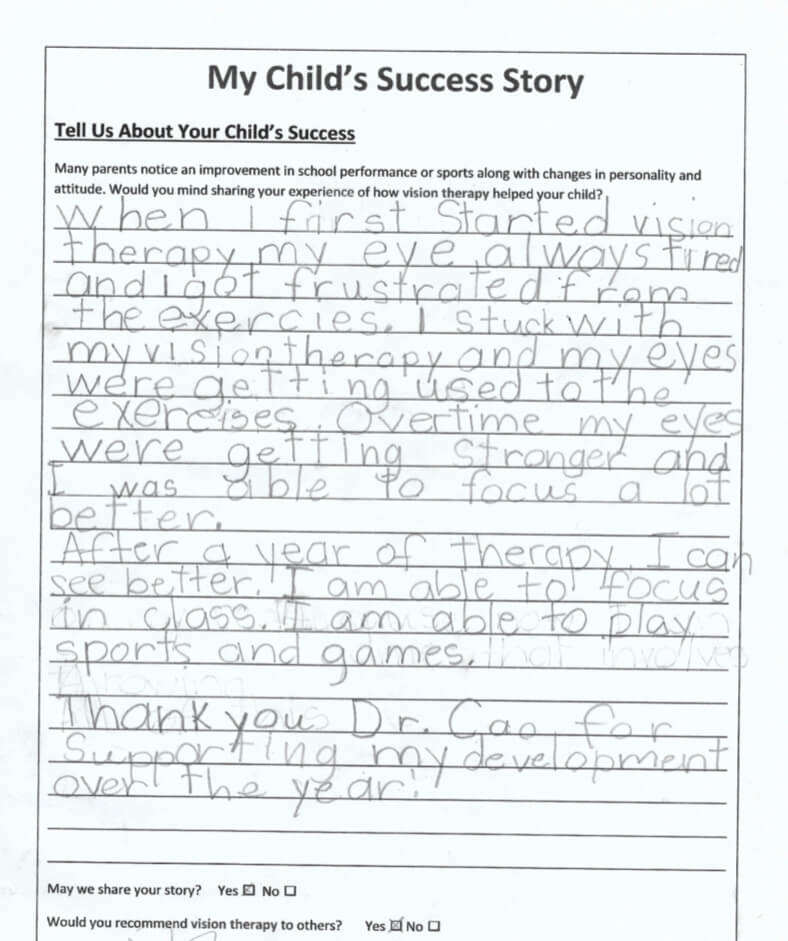 My Child's Success Story
Tell Us About Your Child's Success
Many parents notice an improvement in school performance or sports along with changes in personality and
attitude. Would you mind sharing your experience of how vision therapy helped your child?
When I first started vision
therapy my eye always tired
and I got frustrated from
the exercies. I stuck with
my vision therapy and my eyes
were getting used to the
exercises. Overtime my eyes
were getting stronger and
I was able to focus a lot
better.
After a year of therapy, I can
see better. I am able to focus
in class. I am able to play
sports and games. that involves
throwing
Thank you Dr. Cao for
supporting my development
over the year!
May we share your story? Yes ☒ No ☐
Would you recommend vision therapy to others? Yes ☒ No ☐